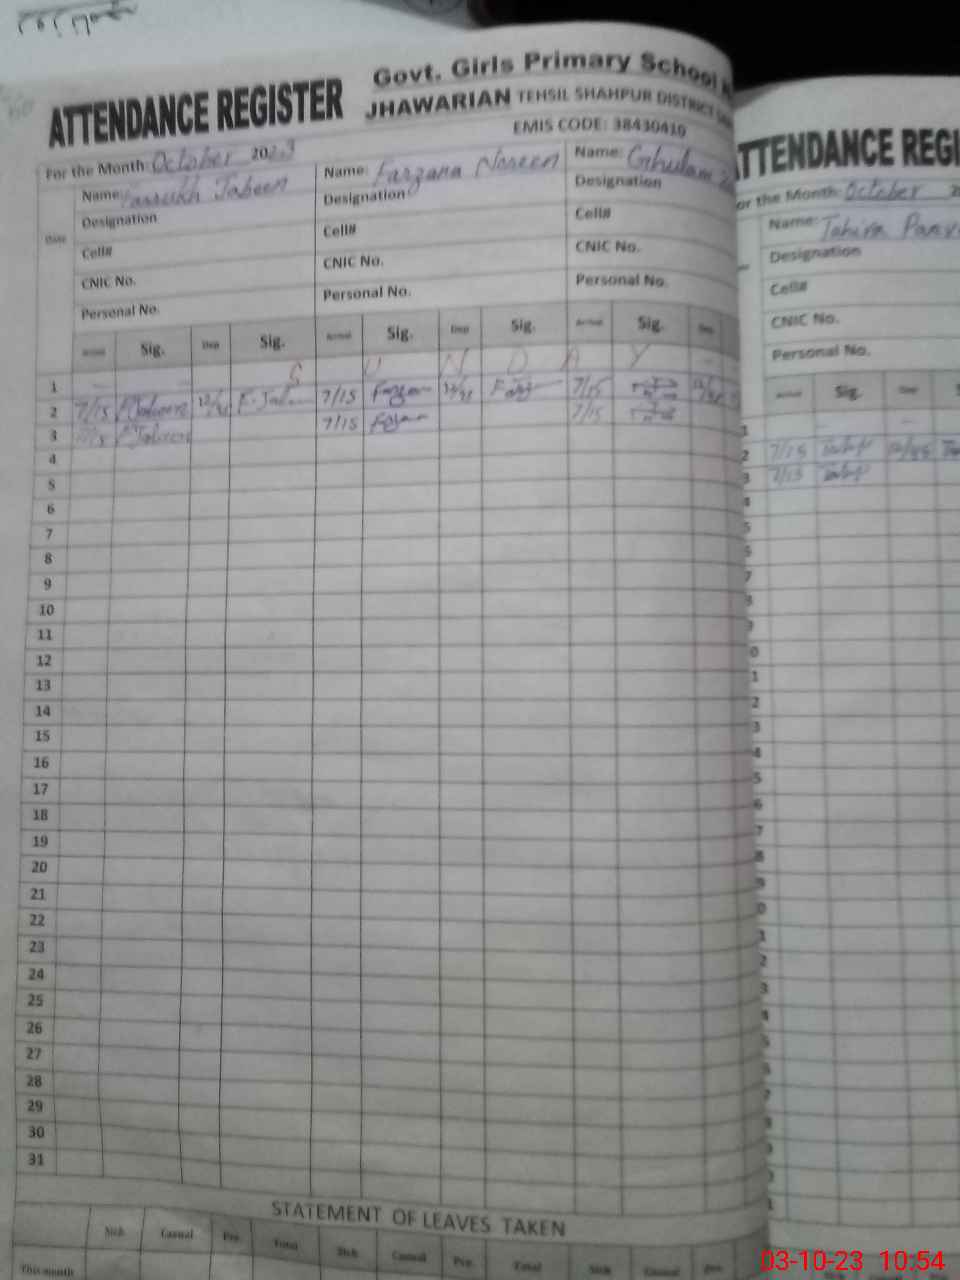 ATTENDANCE REGISTER
Govt. Girls Primary School
JHAWARIAN TEHSIL SHAHPUR DISTRICT
EMIS CODE: 38430410
For the Month: October 2023
Name: Farrukh Jabeen Name: Farzana Noreen Name: Ghulam
Designation Designation Designation
Date
Cell# Cell# Cell#
CNIC No. CNIC No. CNIC No.
Personal No. Personal No. Personal No.
Arrival Sig. Dep Sig. Arrival Sig. Dep Sig. Arrival Sig. Dep
1 S U N D A Y
2 7/15 F.Jabeen 12/45 F.Jabeen 7/15 12/45 7/15
3 7/15 F.Jabeen 7/15 7/15
4
5
6
7
8
9
10
11
12
13
14
15
16
17
18
19
20
21
22
23
24
25
26
27
28
29
30
31
STATEMENT OF LEAVES TAKEN
Sick Casual Prv. Total Sick Casual Prv. Total Sick Casual Prv.
This month
TTENDANCE REGI
or the Month: October
Name: Tahira
Designation
Cell#
CNIC No.
Personal No.
Arrival Sig. Dep
1
2 7/15
3 7/15
03-10-23 10:54